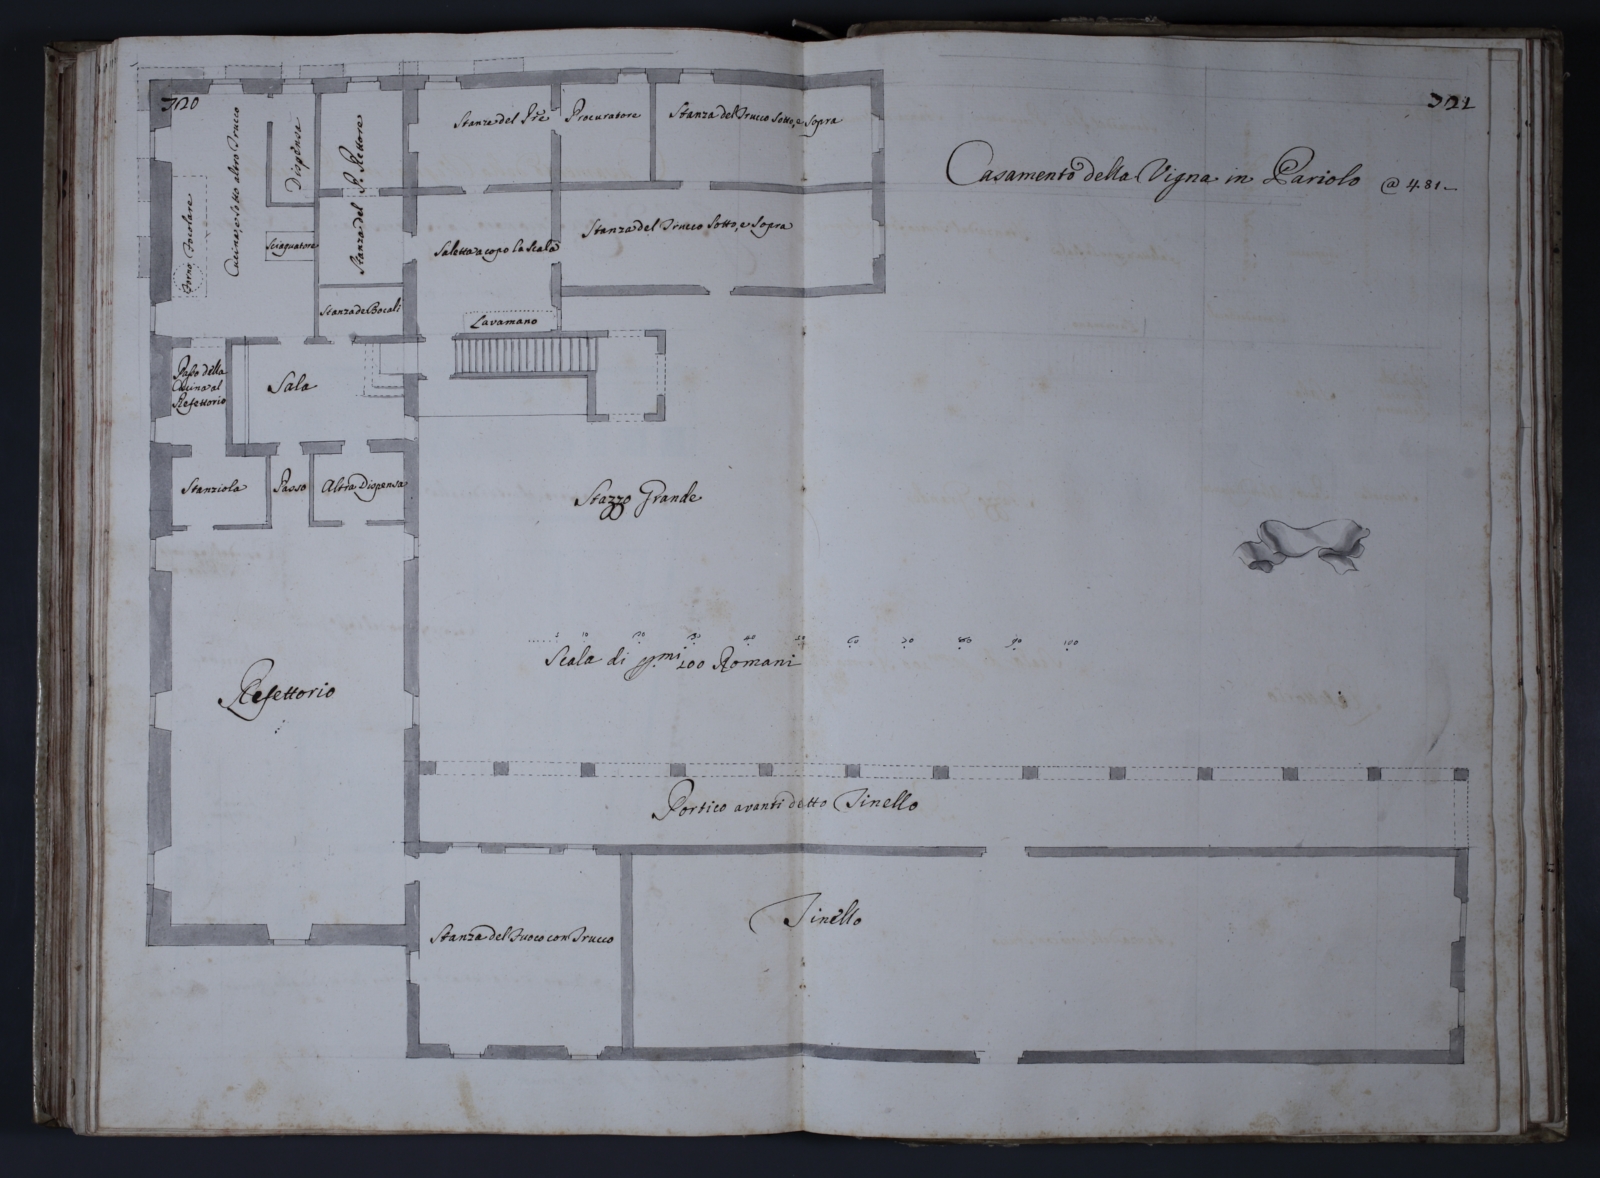 320
321
Casamento della Vigna in Pariolo @ 481
Stanza del Pre Procuratore
Stanza del Trucco Sotto, e Sopra
Stanza del Trucco Sotto, e Sopra
Cucina, e Sotto altro Trucco
Dispensa
Stanza del P. Rettore
Forno, Focolare
Sciaquatore
Saletta a capo la Scala
Stanza de Bocali
Lavamano
Passo della
Cucina al
Refettorio
Sala
Stanziola
Passo
Altra Dispensa
Stazzo Grande
10 20 30 40 50 60 70 80 90 100
Scala di pmi 100 Romani
Refettorio
Portico avanti detto Tinello
Tinello
Stanza del Fuoco con Trucco